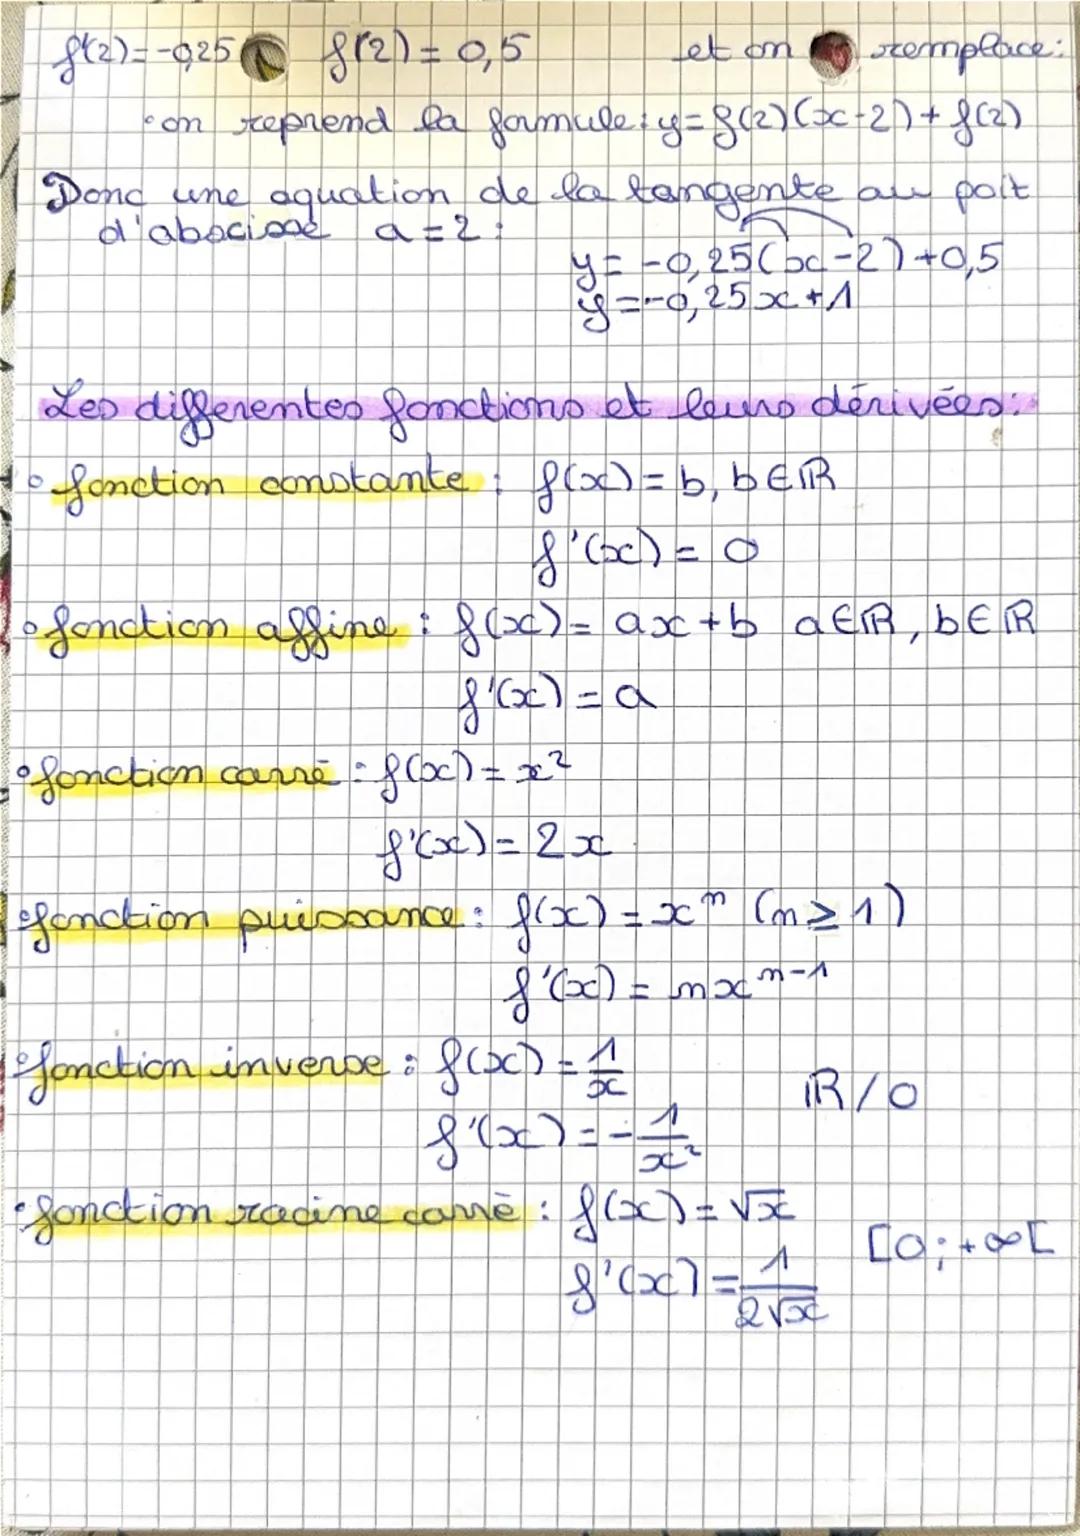 f'(2)=-0,25 f(2)=0,5 et on remplace:
• on reprend la formule: y=f(2)(x-2)+f(2)
Donc une aquation de la tangente au poit
d'abscisse a=2:
y= -0,25(x-2)+0,5
y=-0,25x+1
Les differentes fonctions et leurs dérivées:
• fonction constante : f(x)=b, b∈ℝ
f'(x)= 0
• fonction affine : f(x)= ax+b a∈ℝ, b∈ℝ
f'(x)=a
• fonction carré : f(x)=x²
f'(x)=2x
• fonction puissance: f(x)=xⁿ (n≥1)
f'(x)= nxⁿ⁻¹
• fonction inverse : f(x)=1/x
ℝ/0
f'(x)=-1/x²
• fonction racine carré : f(x)=√x
[0;+∞[
f'(x)=1/2√x